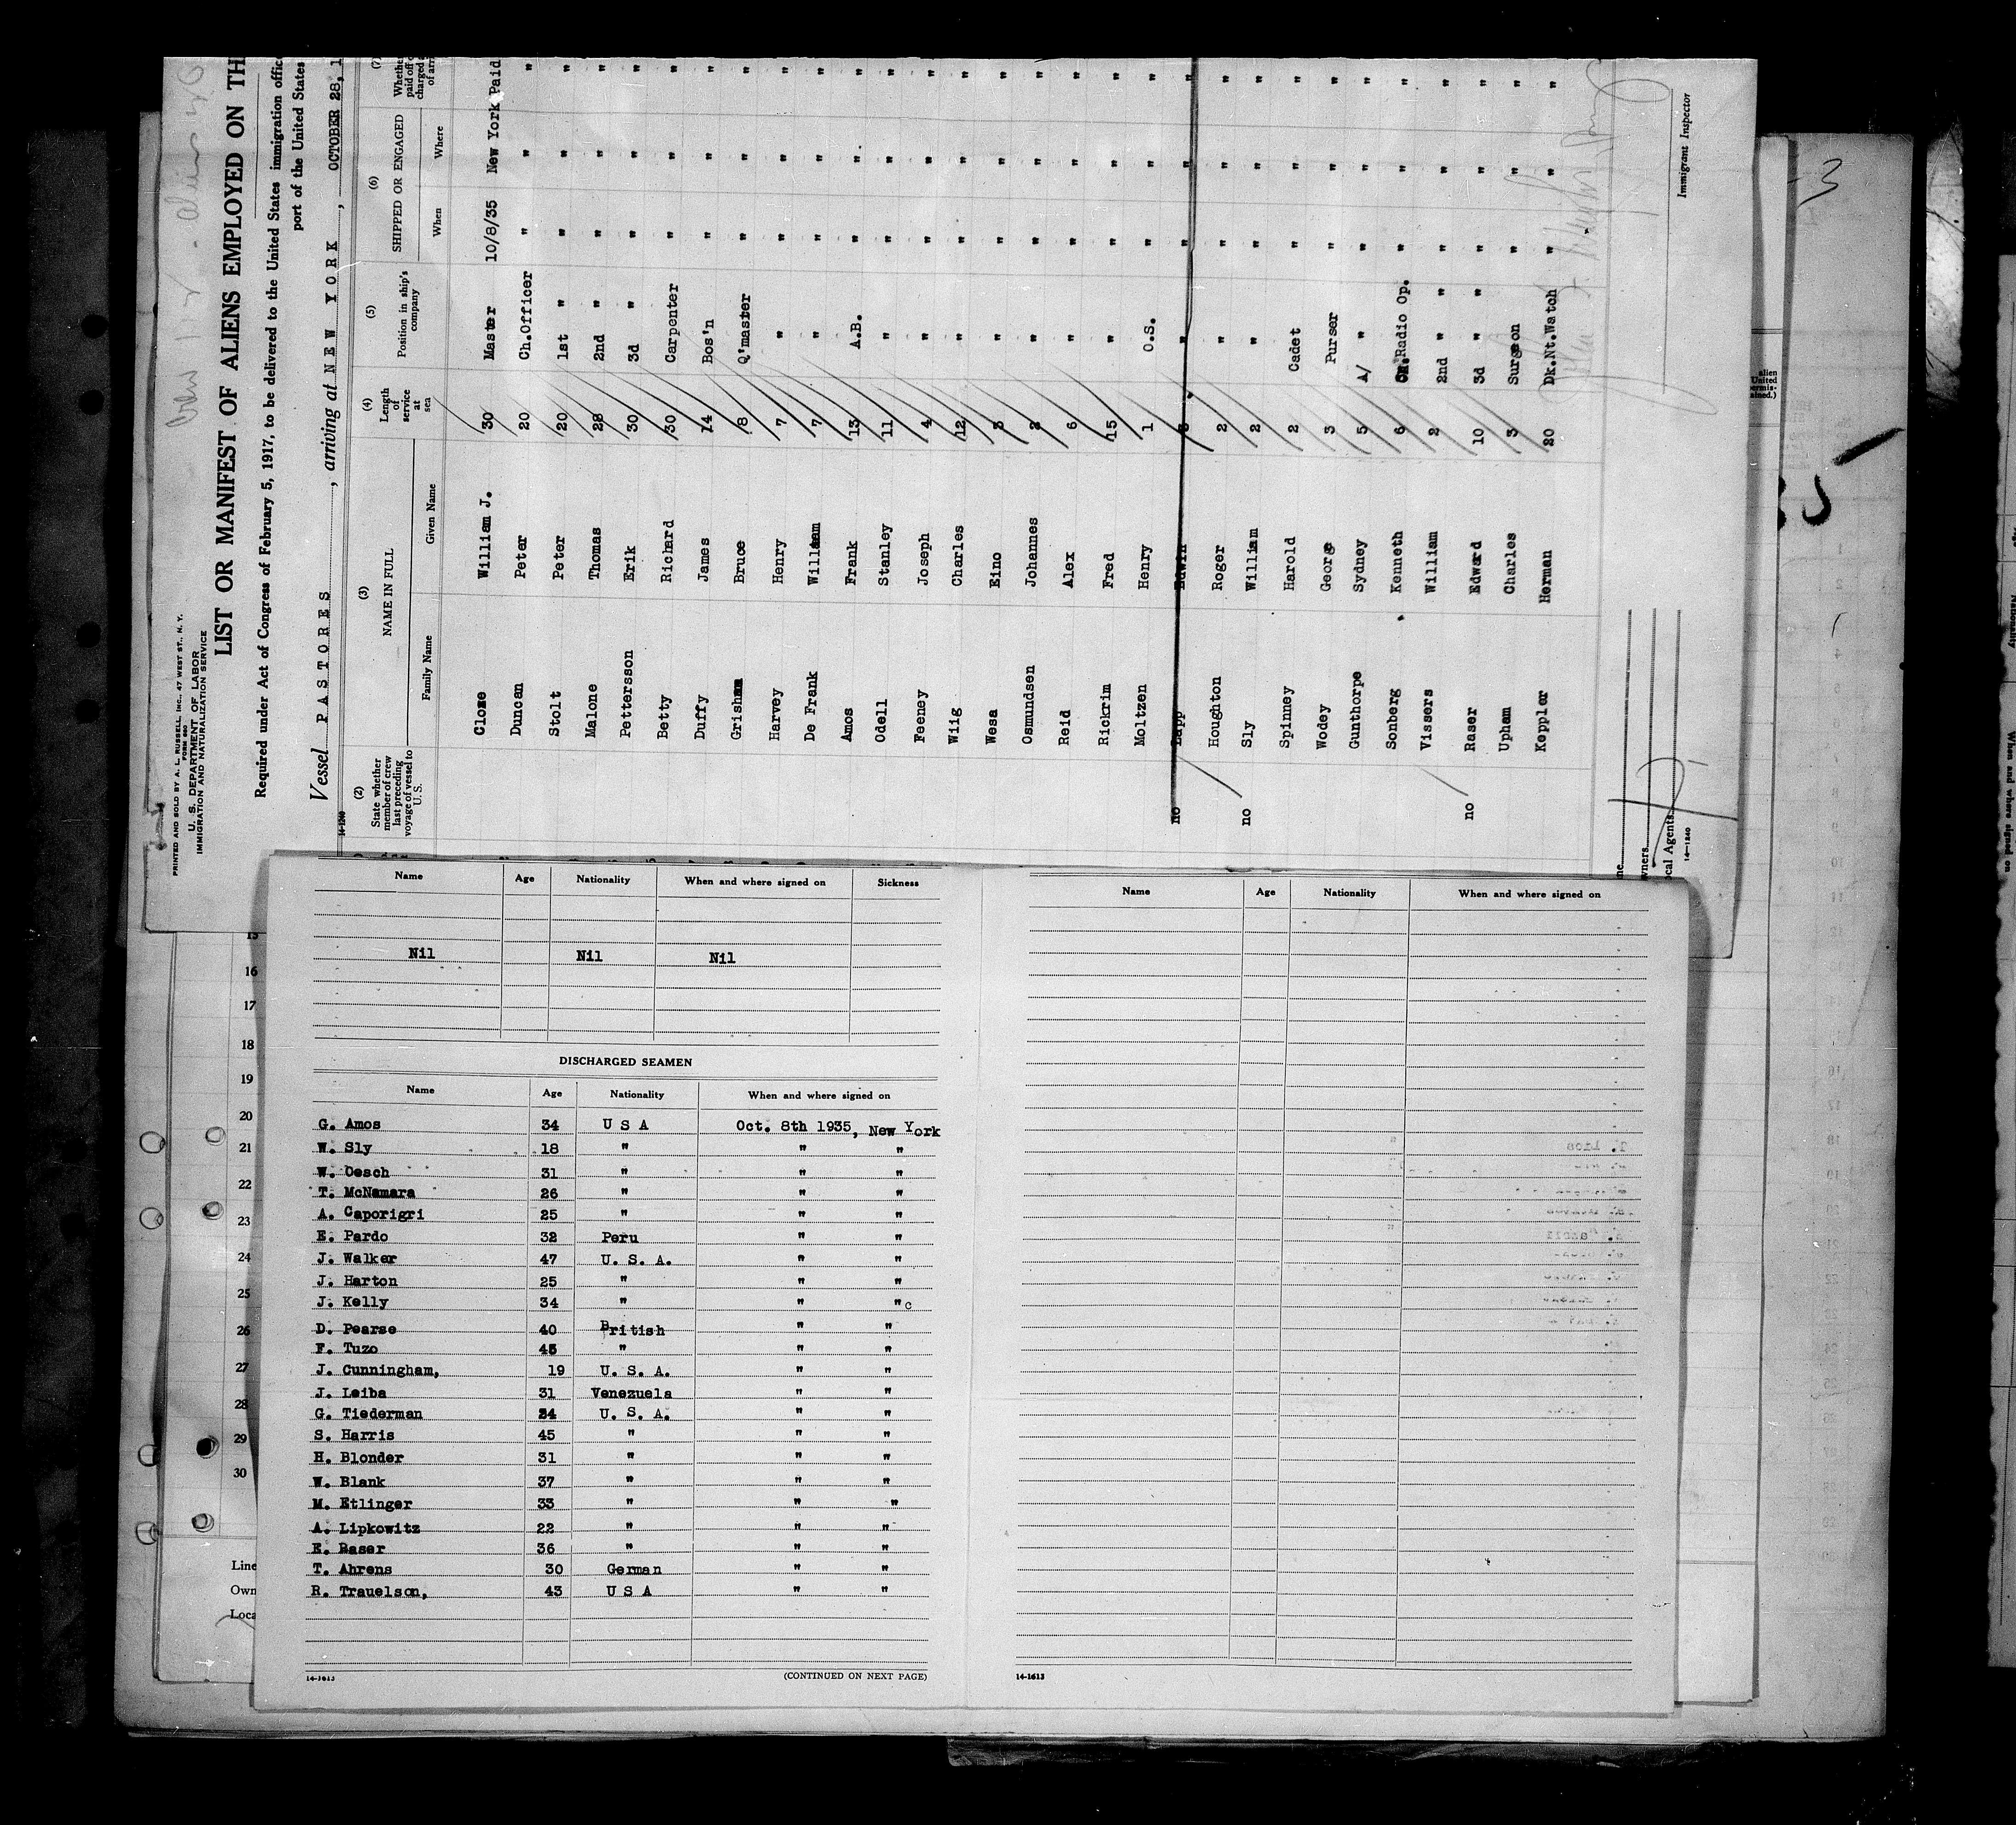 PRINTED AND SOLD BY A. L. RUSSELL, INC., 47 WEST ST., N. Y.
FORM 680
U. S. DEPARTMENT OF LABOR
IMMIGRATION AND NATURALIZATION SERVICE
LIST OR MANIFEST OF ALIENS EMPLOYED ON TH
Required under Act of Congress of February 5, 1917, to be delivered to the United States immigration office
port of the United States
Vessel PASTORES, arriving at NEW YORK, OCTOBER 28, 1
14-1240
(2) (3) (4) (5) (6) (7)
State whether member of crew last preceding voyage of vessel to U. S. NAME IN FULL Length of service at sea Position in ship's company SHIPPED OR ENGAGED Whether paid off charged of arri
Family Name Given Name When Where
Clone William J. 30 Master 10/8/35 New York Paid
Duncan Peter 20 Ch.Officer " " "
Stolt Peter 20 1st " " " "
Malone Thomas 28 2nd " " " "
Pettersson Erik 30 3d " " " "
Betty Richard 30 Carpenter " " "
Duffy James 14 Bos'n " " "
Grisham Bruce 8 Q'master " " "
Harvey Henry 7 " " " "
De Frank William 7 " " " "
Amos Frank 13 A.B. " " "
Odell Stanley 11 " " " "
Feeney Joseph 4 " " " "
Wiig Charles 12 " " " "
Wesa Eino 3 " " " "
Osmundsen Johannes 2 " " " "
Reid Alex 6 " " " "
Rickrim Fred 15 " " " "
Moltzen Henry 1 O.S. " " "
no Edwin " " " "
Houghton Roger 2 " " " "
no Sly William 2 " " " "
Spinney Harold 2 Cadet " " "
Wodey George 3 Purser " " "
Gunthorpe Sydney 5 A/ " " " "
Sonberg Kenneth 6 Radio Op. " " "
Vissers William 2 2nd " " " " "
no Raser Edward 10 3d " " " " "
Upham Charles 3 Surgeon " " "
Keppler Herman 20 Dk.Nt.Watch " " "
Immigrant Inspector
wners
ocal Agents
14-1240
-3
15
16
17
18
19
20
21
22
23
24
25
26
27
28
29
30
Line
Own
Loca
Name Age Nationality When and where signed on Sickness
Nil Nil Nil
DISCHARGED SEAMEN
Name Age Nationality When and where signed on
G. Amos 34 U S A Oct. 8th 1935, New York
W. Sly 18 " " "
W. Oesch 31 " " "
T. McNamara 26 " " "
A. Caporigri 25 " " "
E. Pardo 32 Peru " "
J. Walker 47 U. S. A. " "
J. Harton 25 " " "
J. Kelly 34 " " " c
D. Pearse 40 British " "
F. Tuzo 45 " " "
J. Cunningham, 19 U. S. A. " "
J. Leiba 31 Venezuela " "
G. Tiederman 24 U. S. A. " "
S. Harris 45 " " "
H. Blonder 31 " " "
W. Blank 37 " " "
M. Etlinger 33 " " "
A. Lipkowitz 22 " " "
E. Raser 36 " " "
T. Ahrens 30 German " "
R. Trauelson, 43 U S A " "
14-1613
(CONTINUED ON NEXT PAGE)
Name Age Nationality When and where signed on
14-1613